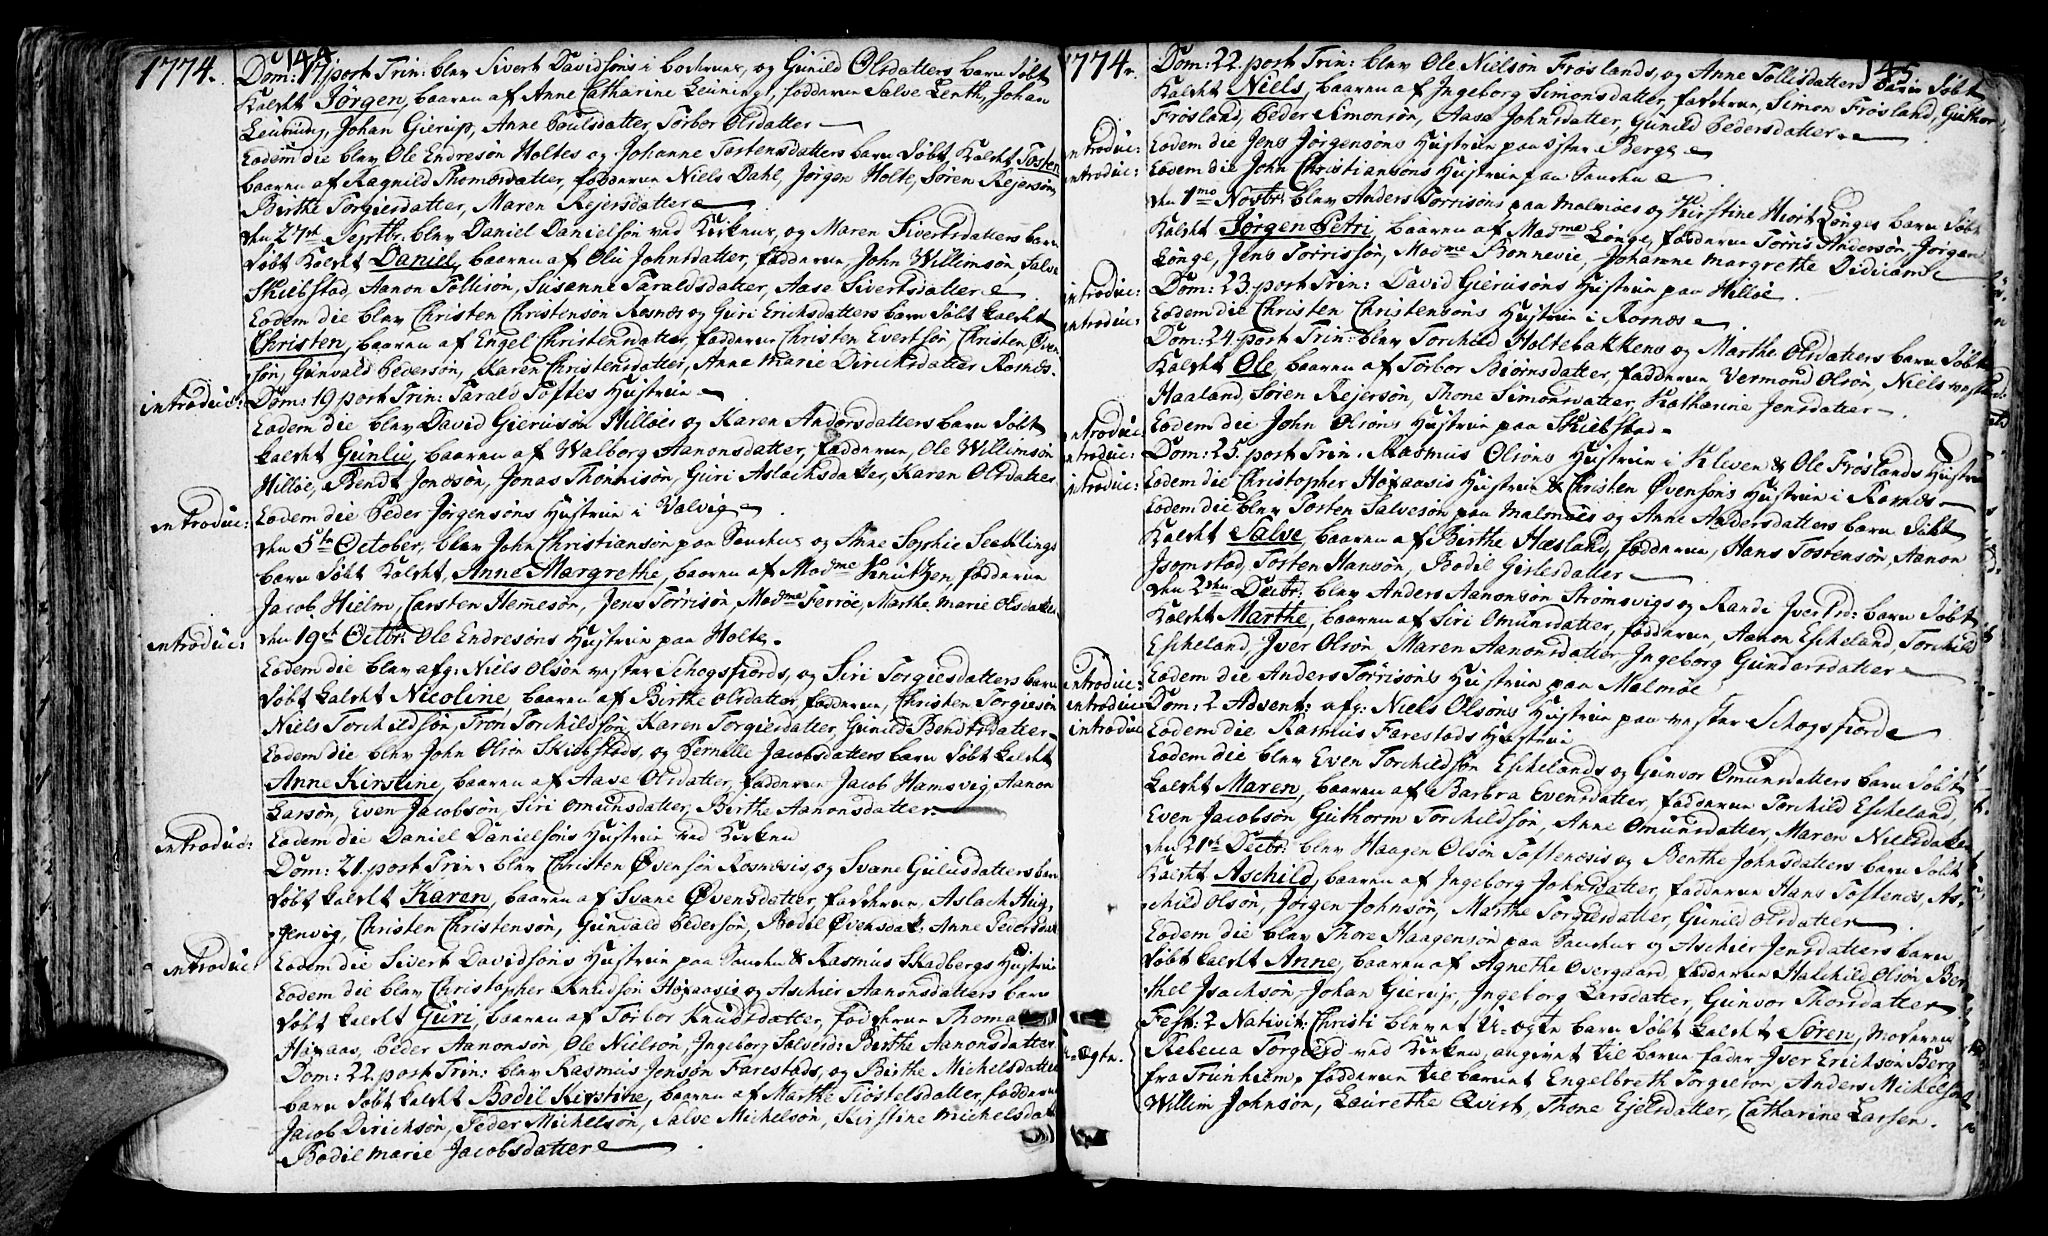 1774.
144
Dom: 17 post Trin: blev Sivert Davidsøns i Buskene, og Gunild Olsdatters barn døbt
kaldet Jørgen, baaren af Anne Catharine Leuning, fadderne Salve Lenth, Johan
Leuning, Johan Gierup, Anne Poulsdatter, Torbor Olsdatter
Eodem die blev Ole Endresøn Holtes og Johanne Tostensdatters barn døbt, kaldet Tosten
baaren af Ragnild Thomasdatter, fadderne Niels Dahl, Jørgen Holte, Søren Rejersøn,
Birthe Torgiersdatter, Maren Rejersdatter
den 27de Septbr: blev Daniel Danielsøn ved Kirkens, og Maren Sivertsdatters barn
døbt kaldet Daniel, baaren af Oliv Johnsdatter, fadderne, John Willimsøn, Salve
Skiebstad, Aanon Tollisøn, Susanne Taraldsdatter, Aase Sivertsdatter
Eodem die blev Christen Christensøn Rosnæs og Guri Erichsdatters barn døbt kaldet
Christen, baaren af Engel Christensdatter, fadderne Christen Evertsøn, Christen Øven
søn, Gunvald Pedersøn, Karen Christensdatter, Anne Marie Dirichsdatter Rosnæs.
introduc: Dom: 19 post Trin: Tarald Toftes Hustrue
Eodem die blev David Gierusøn Hilløes og Karen Andersdatters barn døbt
kaldet Gunliv, baaren af Walborg Aanonsdatter, fadderne, Ole Willimsøn
Hilløe, Bendt Jonasøn, Jonas Thønnisøn, Guri Aslachsdatter, Karen Olsdatter
introduc: Eodem die Peder Jørgensøns Hustrue i Valvig
den 5te October, blev John Christiansøn paa Sanden og Anne Sophie Secklings
barn døbt kaldet, Anne Margrethe, baaren af Madme Knutzen, fadderne
Jacob Hielm, Carsten Hemmesøn, Jens Tørrisøn, Madme Ferrøe, Marthe Marie Olsdatter
introduc: den 19de Octbr: Ole Endresøns Hustrue paa Holte.
Eodem die blev afg: Niels Olsøn vester Schogsfiords, og Siri Torgiesdatters barn
døbt kaldet Nicoline, baaren af Birthe Olsdatter, fadderne, Christen Torgiesøn
Niels Torchildsøn, Tron Torchildsøn, Karen Torgiersdatter, Gunild Bendtsdatter
Eodem die blev John Olsøn Skiebstads, og Pernelle Jacobsdatters barn døbt kaldet
Anne Kirstine, baaren af Aase Olsdatter, fadderne Jacob Hamsvig, Aanon
Larsøn, Even Jacobsøn, Siri Omunsdatter, Birthe Aanonsdatter
introduc: Eodem die Daniel Danielsøns Hustrue ved Kirken
Dom: 21. post Trin: blev Christen Øvensøn Rosnæsis, og Svane Gulusdatters barn
døbt kaldet Karen, baaren af Svane Øvensdatter, fadderne, Aslach Hug,
Jenvig, Christen Christensøn, Gunvald Pedersøn, Bodil Øvensdat: Anne Pedersdat
introduc: Eodem die Sivert Davidsøns Hustrue paa Sanden & Rasmus Skadbergs Hustrue
Eodem die blev Christopher Knudsøn Høfaasis og Aschier Aanonsdatters barn
døbt kaldet Guri, baaren af Torbor Knudsdatter, fadderne Thomas
Høfaas, Peder Aanonsøn, Ole Nielsøn, Ingeborg Salvesd: Birthe Aanonsdatter
Dom: 22. post Trin: blev Rasmus Jensøn Farestads, og Birthe Michelsdatters
barn døbt kaldet Bodil Kirstine, baaren af Marthe Tøstelsdatter, fadderne
Jacob Dirichsøn, Peder Michelsøn, Salve Michelsøn, Kirstine Michelsdatter
Bodil Marie Jacobsdatter
1774.
145.
Dom: 22. post Trin: blev Ole Nielsøn Frøslands, og Anne Tollisdatters barn døbt
kaldet Niels, baaren af Ingeborg Simonsdatter, fadderne, Simon Frøsland, Guthor
Frøsland, Peder Simonsøn, Aase Johnsdatter, Gunild Pedersdatter
introduc: Eodem die Jens Jørgensøns Hustrue paa øster Berge
introduc: Eodem die John Christiansøns Hustrue paa Sanden
den 1mo Novbr: blev Anders Tørrisøns paa Malmøes og Kirstine Hiort Longes barn døbt
kaldet Jørgen Petri, baaren af Madme Longe, fadderne Tørris Andersøn, Jørgen
Longe, Jens Tørrissøn, Madme Bonnevie, Johanne Margrethe Dideicam
introduc: Dom: 23. post Trin: David Gierusøns Hustrue paa Hilløe.
introduc: Eodem die Christen Christensøns Hustrue i Rosnæs
Dom: 24. post Trin: blev Torchild Holtebakkens og Marthe Olsdatters barn døbt
kaldet Ole, baaren af Torbor Biørnsdatter, fadderne, Vermond Olsøn, Niels vester
Haaland, Søren Rejersøn, Thone Simonsdatter, Katharine Jensdatter
introduc: Eodem die John Olsøns Hustrue paa Skiebstad
introduc: Dom: 25. post Trin. Rasmus Olsøns Hustrue i Kleven & Ole Frøslands Hustrue
introduc: Eodem die Christopher Høfaasis Hustrue & Christen Øvensøns Hustrue i Rosnæs
Eodem die blev Tosten Salvesøn paa Malmøes og Anne Andersdatters barn døbt
kaldet Salve, baaren af Birthe Hæsland, fadderne, Hans Tostensøn, Aanon
Isomstad, Tosten Hansøn, Bodil Gislesdatter
den 2den Decbr: blev Anders Aanonsøn Strømsvigs og Rande Iversd: barn døbt
kaldet Marthe, baaren af Siri Omunsdatter, fadderne, Aanon Eskeland, Torchild
Eskeland, Iver Olsøn, Maren Aanonsdatter, Ingeborg Gundersdatter
introduc: Eodem die Anders Tørrisøns Hustrue paa Malmøe
introduc: Dom: 2 Advent: afg: Niels Olsøns Hustrue paa vester Schogsfiord
introduc: Eodem die Rasmus Farestads Hustrue
Eodem die blev Even Torchildsøn Eskelands og Gunvor Omunsdatters barn døbt
kaldet Maren, baaren af Barbra Evensdatter, fadderne Torchild Eskeland,
Even Jacobsøn, Guthorm Torchildsøn, Anne Omunsdatter, Maren Nielsdatter
den 21de Decbr: blev Haagen Olsøn Toftenæsis og Berthe Johnsdatters barn døbt
kaldet Aschild, baaren af Ingeborg Johnsdatter, fadderne Hans Toftenæs, As-
child Olsøn, Jørgen Johnsøn, Marthe Torgiersdatter, Gunild Olsdatter
Eodem die blev Thore Haagensøn paa Sanden og Aschier Jensdatters barn
døbt kaldet Anne, baaren af Agnethe Overgaard, fadderne Halchild Olsøn Ber
thel Isachsøn, Johan Gierup, Ingeborg Larsdatter, Gunvor Thorsdatter
u-ægte. Fest: 2 Nativit: Christi blev et U-ægte barn døbt kaldet Søren, Moderen
Rebecca Torgiersd ved Kirken, angivet til barne fader Iver Erichsøn Berg
fra Trunhiem, fadderne til barnet Engelbreth Torgiersøn, Anders Michelsøn
Willim Johnsøn, Laurethe Qvist, Thone Ejelsdatter, Catharine Larsen.